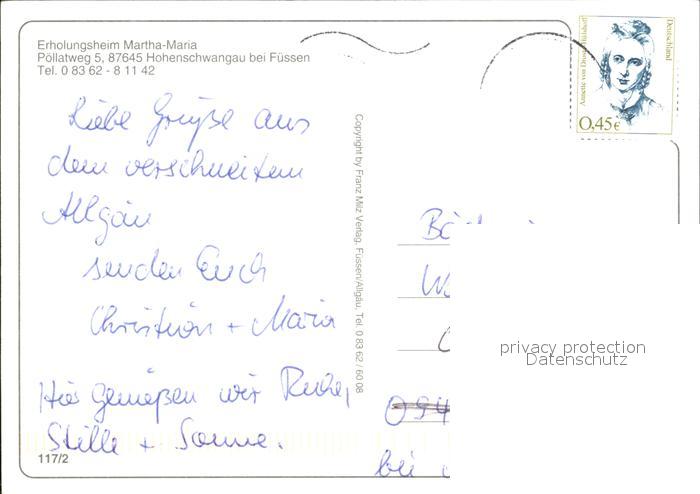 Erholungsheim Martha-Maria
Pöllatweg 5, 87645 Hohenschwangau bei Füssen
Tel. 0 83 62 - 8 11 42
Deutschland
0,45€
Liebe Grüße aus
dem verschneiten
Allgäu
senden Euch
Christian + Maria
Hier genießen wir Ruhe,
Stille + Sonne.
117/2
Copyright by Franz Milz Verlag, Füssen/Allgäu, Tel. 0 83 62 / 60 08
bei
privacy protection
Datenschutz